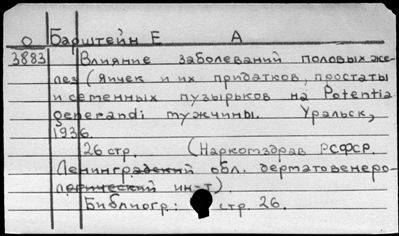 О Барштейн Е А
3883 Влияние заболеваний половых же-
лез (яичек и их придатков, простаты
и семенных пузырьков на Potentia
generandi мужчины. Уральск,
1936.
26 стр. (Наркомздрав РСФСР.
Ленинградский обл. дерматовенеро-
логический ин-т).
Библиогр: стр. 26.